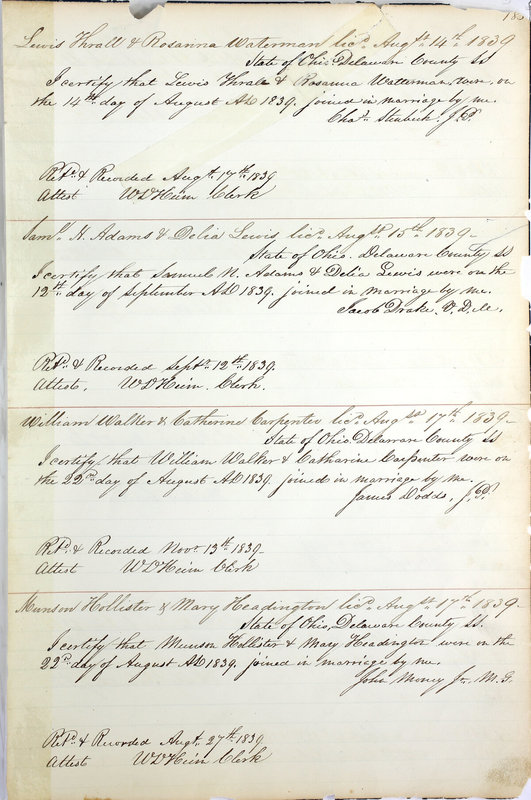 180
Lewis Thrall & Rosanna Waterman licd. Augst. 14th. 1839
State of Ohio Delaware County SS
I certify that Lewis Thrall & Rosanna Watterman were on
the 14th. day of August AD 1839. joined in marriage by me.
Chas. J.P.
Retd. & Recorded Augst. 17th. 1839
Attest W D Heim Clerk
Saml. H. Adams & Delia Lewis licd. Augst. 15th. 1839-
State of Ohio. Delaware County SS
I certify that Samuel H. Adams & Delia Lewis were on the
12th. day of September AD 1839. joined in marriage by me.
Jacob Drake. V.D.M.
Retd. & Recorded Septr. 12th. 1839.
Attest. W D Heim. Clerk.
William Walker & Catherine Carpenter licd. Augst. 17th. 1839-
State of Ohio. Delaware County SS
I certify that William Walker & Catharine Carpenter were on
the 22d. day of August AD 1839. joined in marriage by me.
James Dodds, J.P.
Retd. & Recorded Novr. 13th. 1839-
Attest W D Heim Clerk
Munson Hollister & Mary Headington licd. Augst. 17th. 1839.
State of Ohio, Delaware County SS.
I certify that Munson Hollister & Mary Headington were on the
22d. day of August AD 1839. joined in marriage by me.
John Money Jr. M.G.
Retd. & Recorded Augst. 27th. 1839
Attest W D Heim Clerk